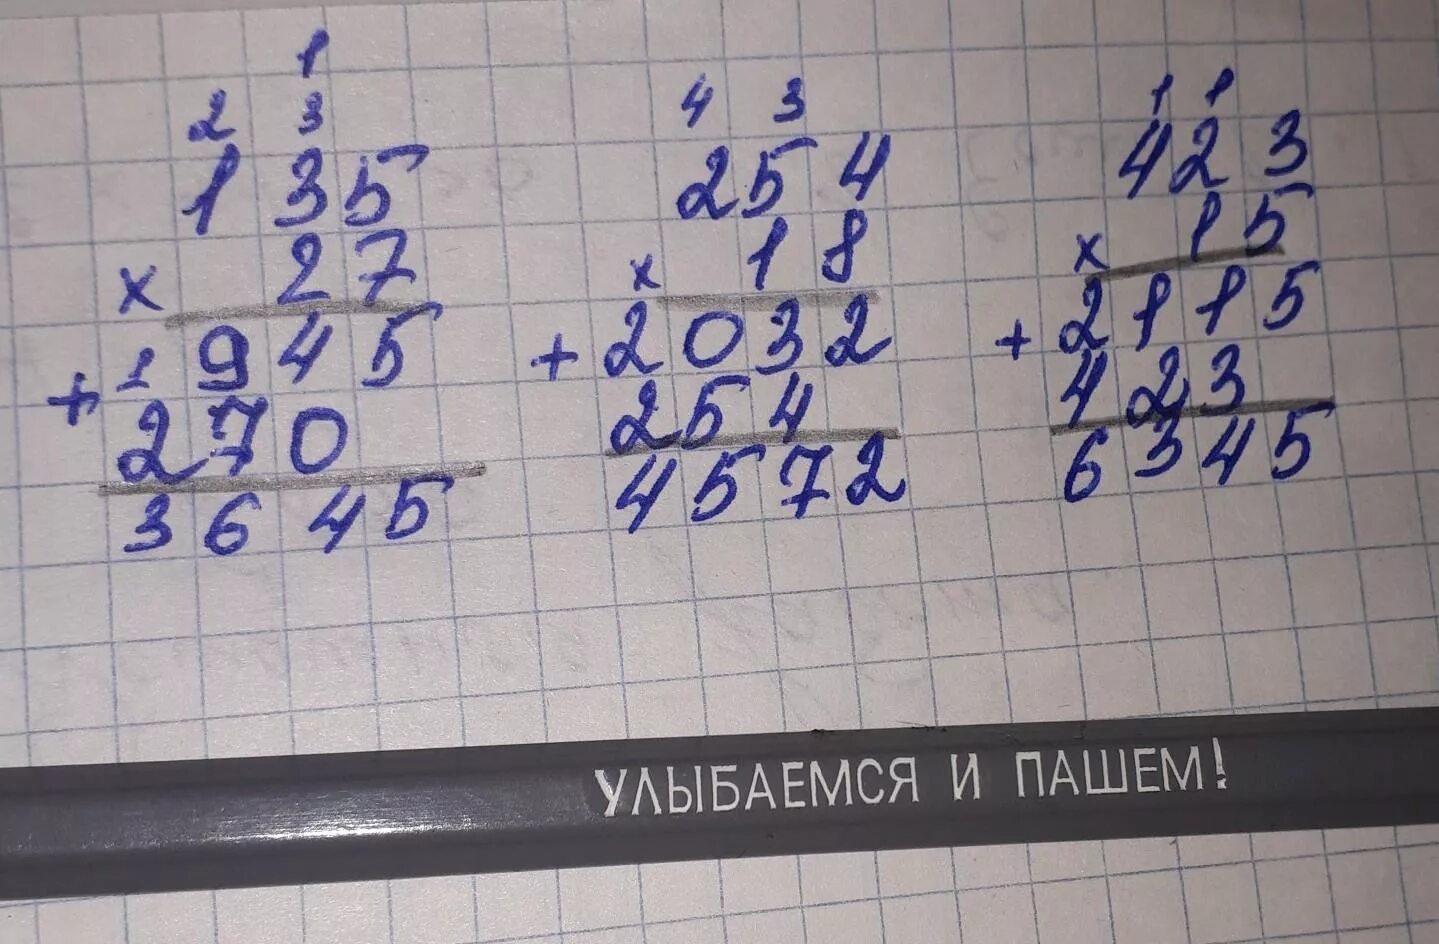 1
2 3
135
× 27
1
945
+ 270
3645
4 3
254
× 18
2032
+ 254
4572
1 1
423
× 15
2115
+ 423
6345
УЛЫБАЕМСЯ И ПАШЕМ!